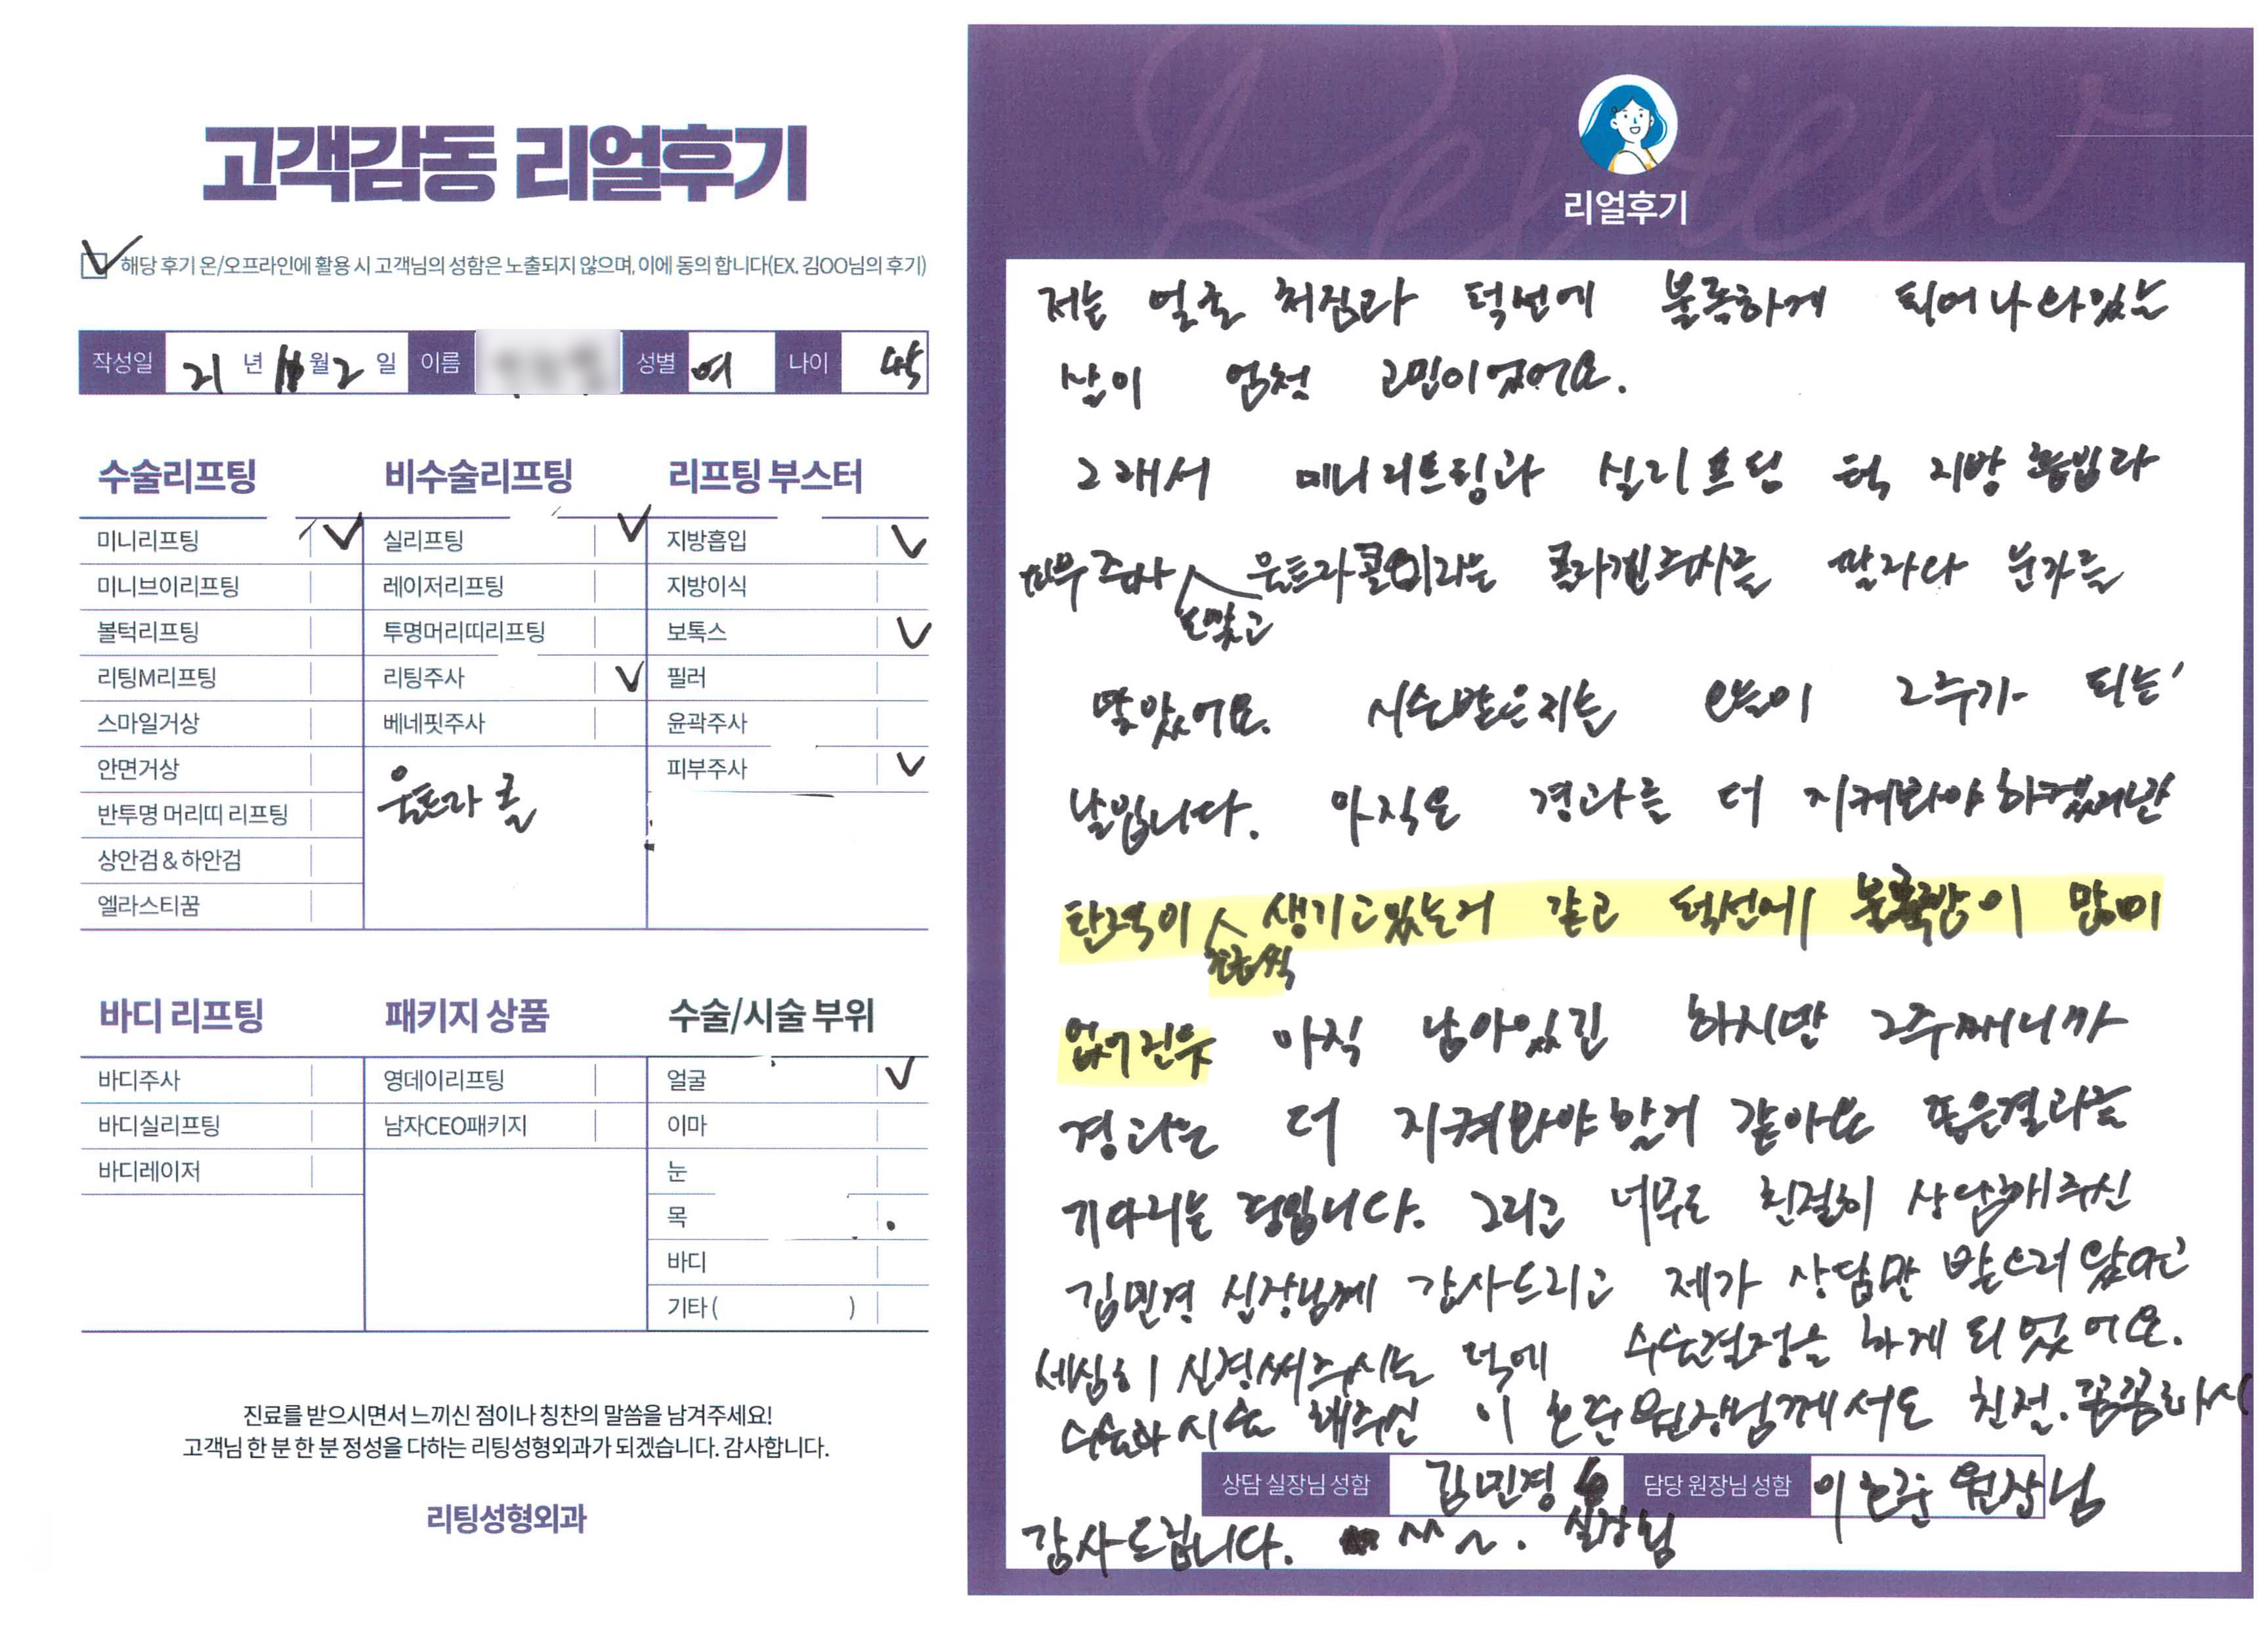 고객감동 리얼후기
해당 후기 온/오프라인에 활용 시 고객님의 성함은 노출되지 않으며, 이에 동의 합니다(EX. 김OO님의 후기)
작성일 21 년 월 2 일 이름 성별 여 나이 45
수술리프팅
미니리프팅
미니브이리프팅
볼턱리프팅
리팅M리프팅
스마일거상
안면거상
반투명 머리띠 리프팅
상안검 & 하안검
엘라스티꿈
비수술리프팅
실리프팅
레이저리프팅
투명머리띠리프팅
리팅주사
베네핏주사
울트라 콜
리프팅 부스터
지방흡입
지방이식
보톡스
필러
윤곽주사
피부주사
바디 리프팅
바디주사
바디실리프팅
바디레이저
패키지 상품
영데이리프팅
남자CEO패키지
수술/시술 부위
얼굴
이마
눈
목
바디
기타 ( )
진료를 받으시면서 느끼신 점이나 칭찬의 말씀을 남겨주세요!
고객님 한 분 한 분 정성을 다하는 리팅성형외과가 되겠습니다. 감사합니다.
리팅성형외과
Review
리얼후기
저는 얼굴 처짐과 턱선에 불룩하게 튀어나와있는
살이 엄청 고민이었어요.
그래서 미니리프팅과 실리프팅 턱 지방흡입과
피부주사도 맞고 울트라콜이라는 콜라겐주사를
맞았어요. 시술받은지는 오늘이 2주가 되는
날입니다. 아직은 경과를 더 지켜봐야 하겠지만
탄력이 조금씩 생기고있는거 같고 턱선에 불룩함이 많이
없어진듯 아직 남아있긴 하지만 2주째니까
경과는 더 지켜봐야 할거 같아요 좋은결과를
기다리는 중입니다. 그리고 너무도 친절히 상담해주신
김민경 실장님께 감사드리고 제가 상담만 받으러 왔다가
세심히 신경써주시는 덕에 수술결정을 하게 되었어요.
수술과 시술 해주신 이 원장님께서도 친절. 꼼꼼하시
상담 실장님 성함 김민경 실장님 담당 원장님 성함 이 원장님
감사드립니다.